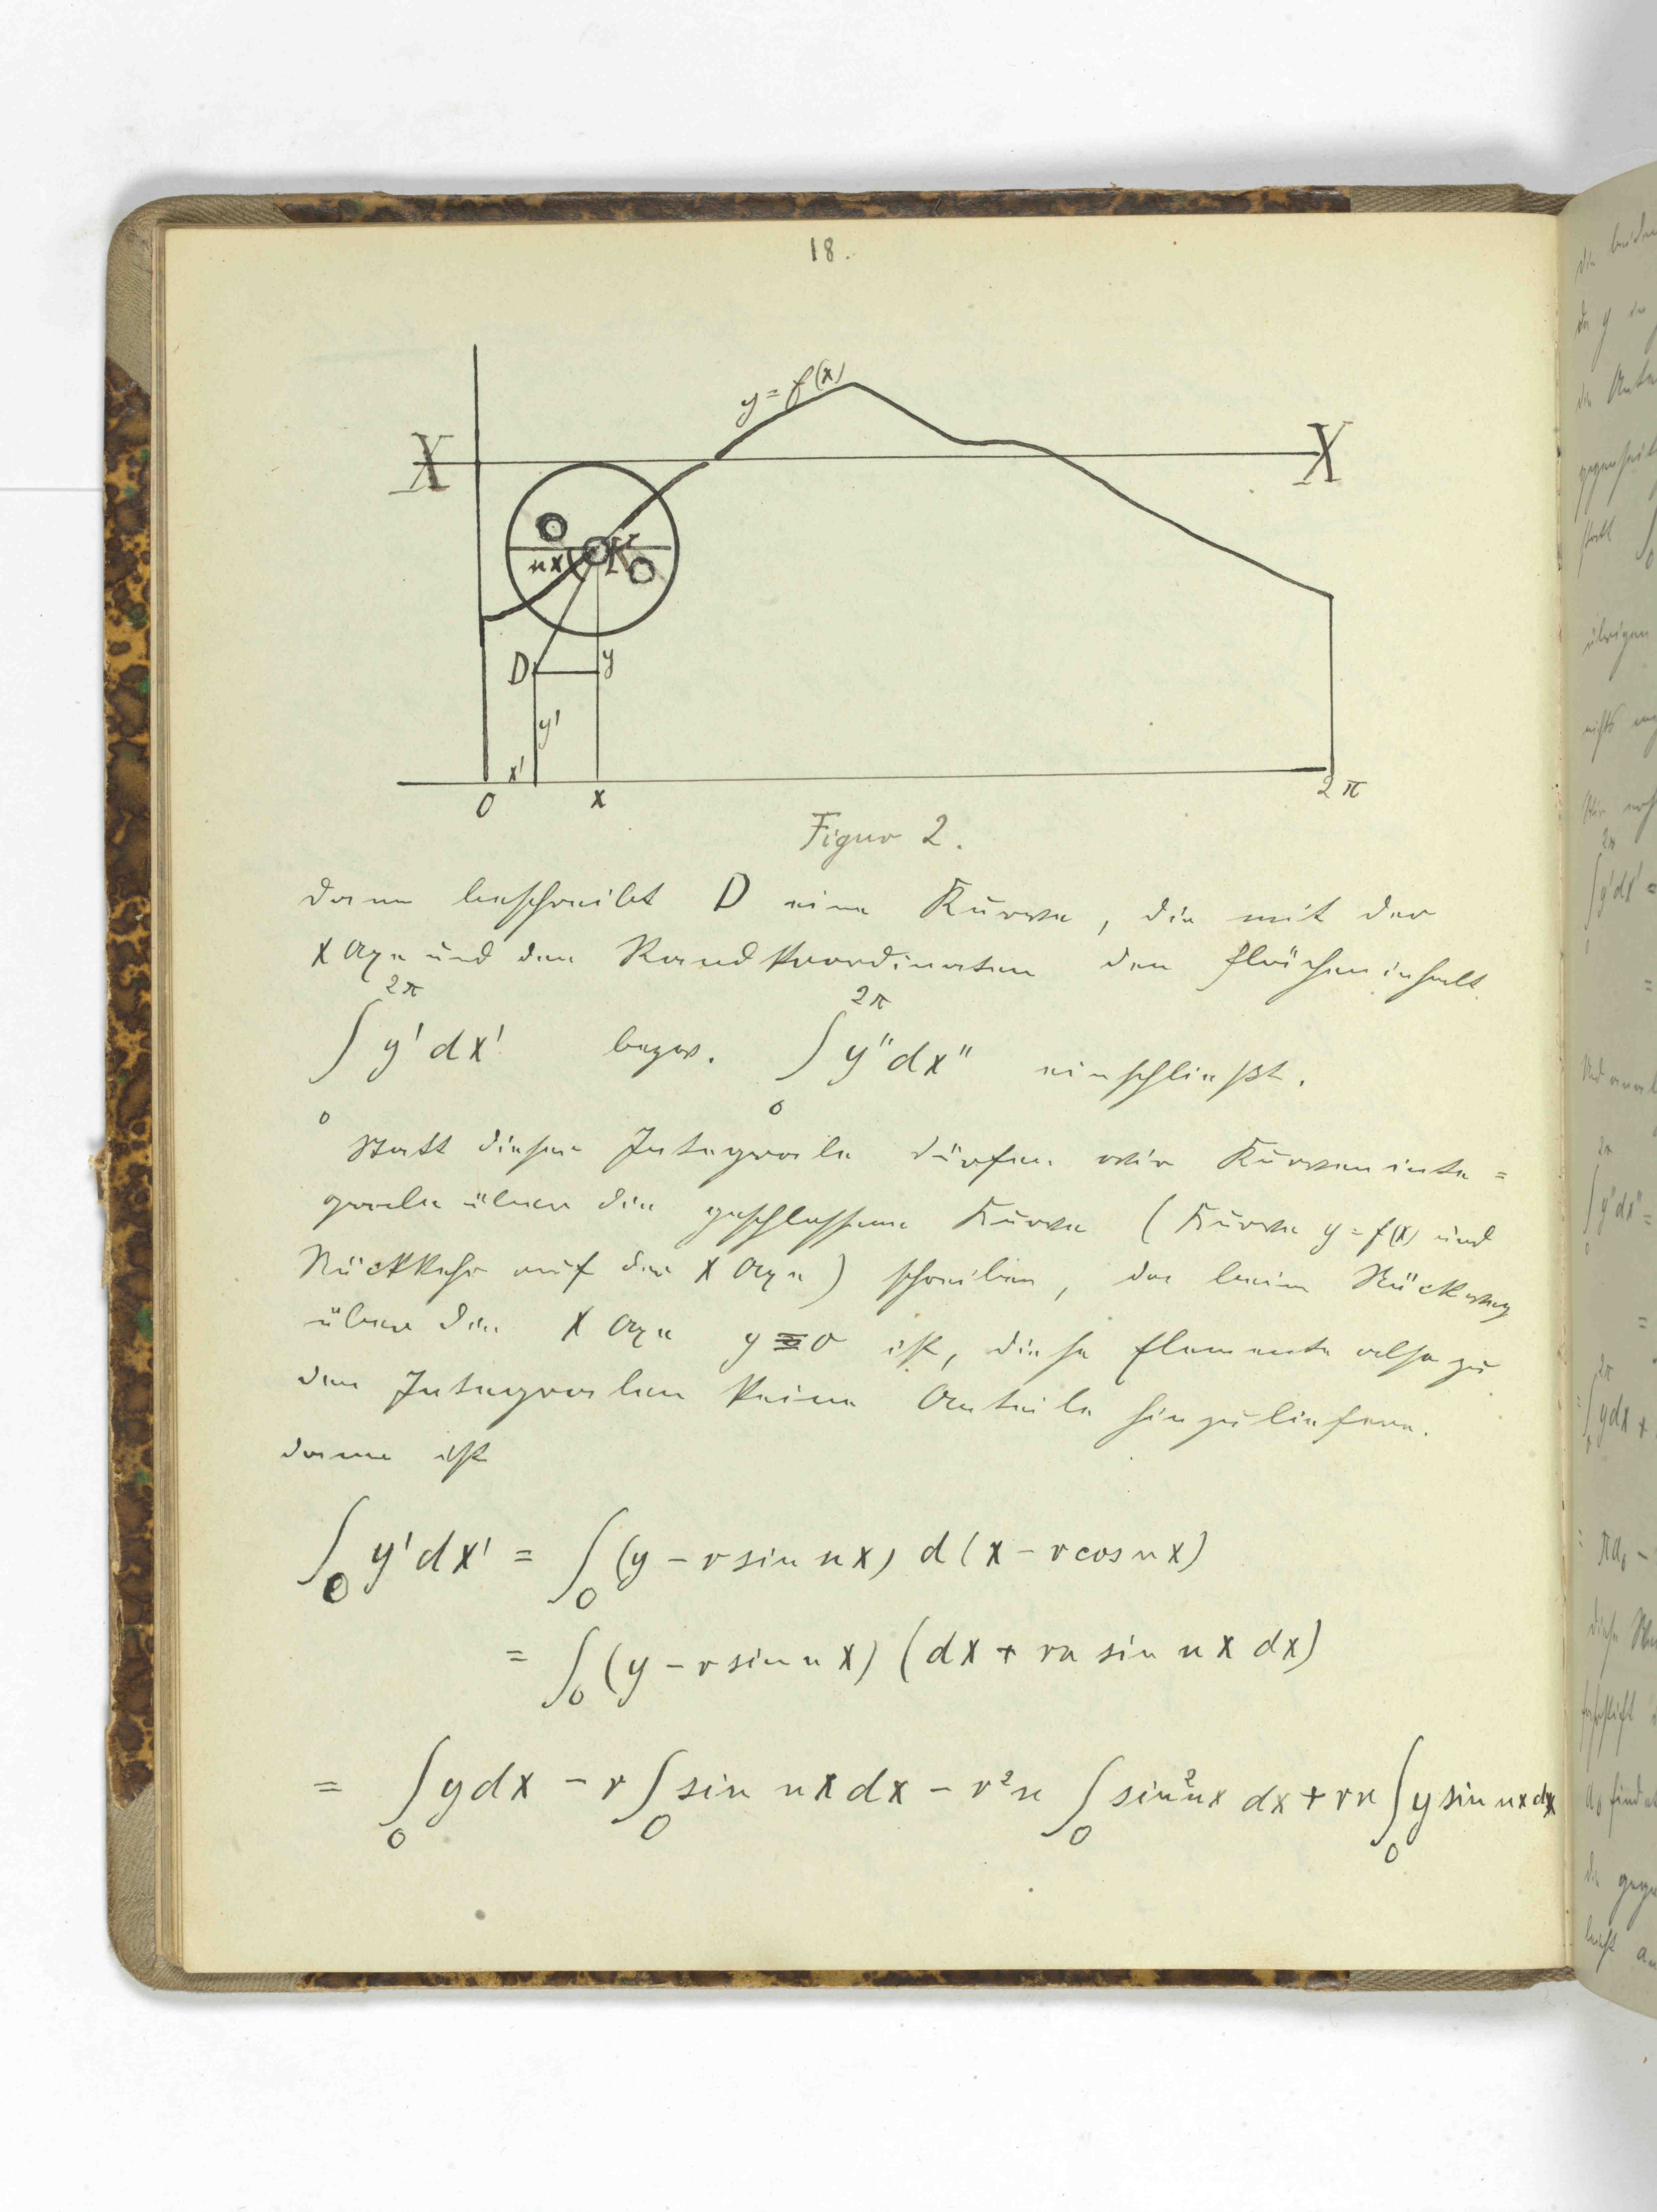 18.
y = f(x)
X X
nx K
D y
y'
x'
0 x 2π
Figur 2.
dann beschreibt D eine Kurve, die mit der
X Axe und den Randkoordinaten den Flächeninhalt
∫₀^2π y'dx' bezw. ∫₀^2π y"dx" einschließt.
Statt dieser Integrale dürfen wir Kurveninte=
grale über die geschlossene Kurve (Kurve y=f(x) und
Rückkehr auf der X Axe) schreiben, da beim Rückweg
über die X Axe y ≡ 0 ist, diese Elemente also zu
den Integralen keine Anteile hinzuliefern.
dann ist
∫₀ y'dx' = ∫₀ (y − r sin nx) d(x − r cos nx)
= ∫₀ (y − r sin nx) (dx + rn sin nx dx)
= ∫₀ ydx − r ∫₀ sin nx dx − r²n ∫₀ sin²nx dx + rn ∫₀ y sin nx dx